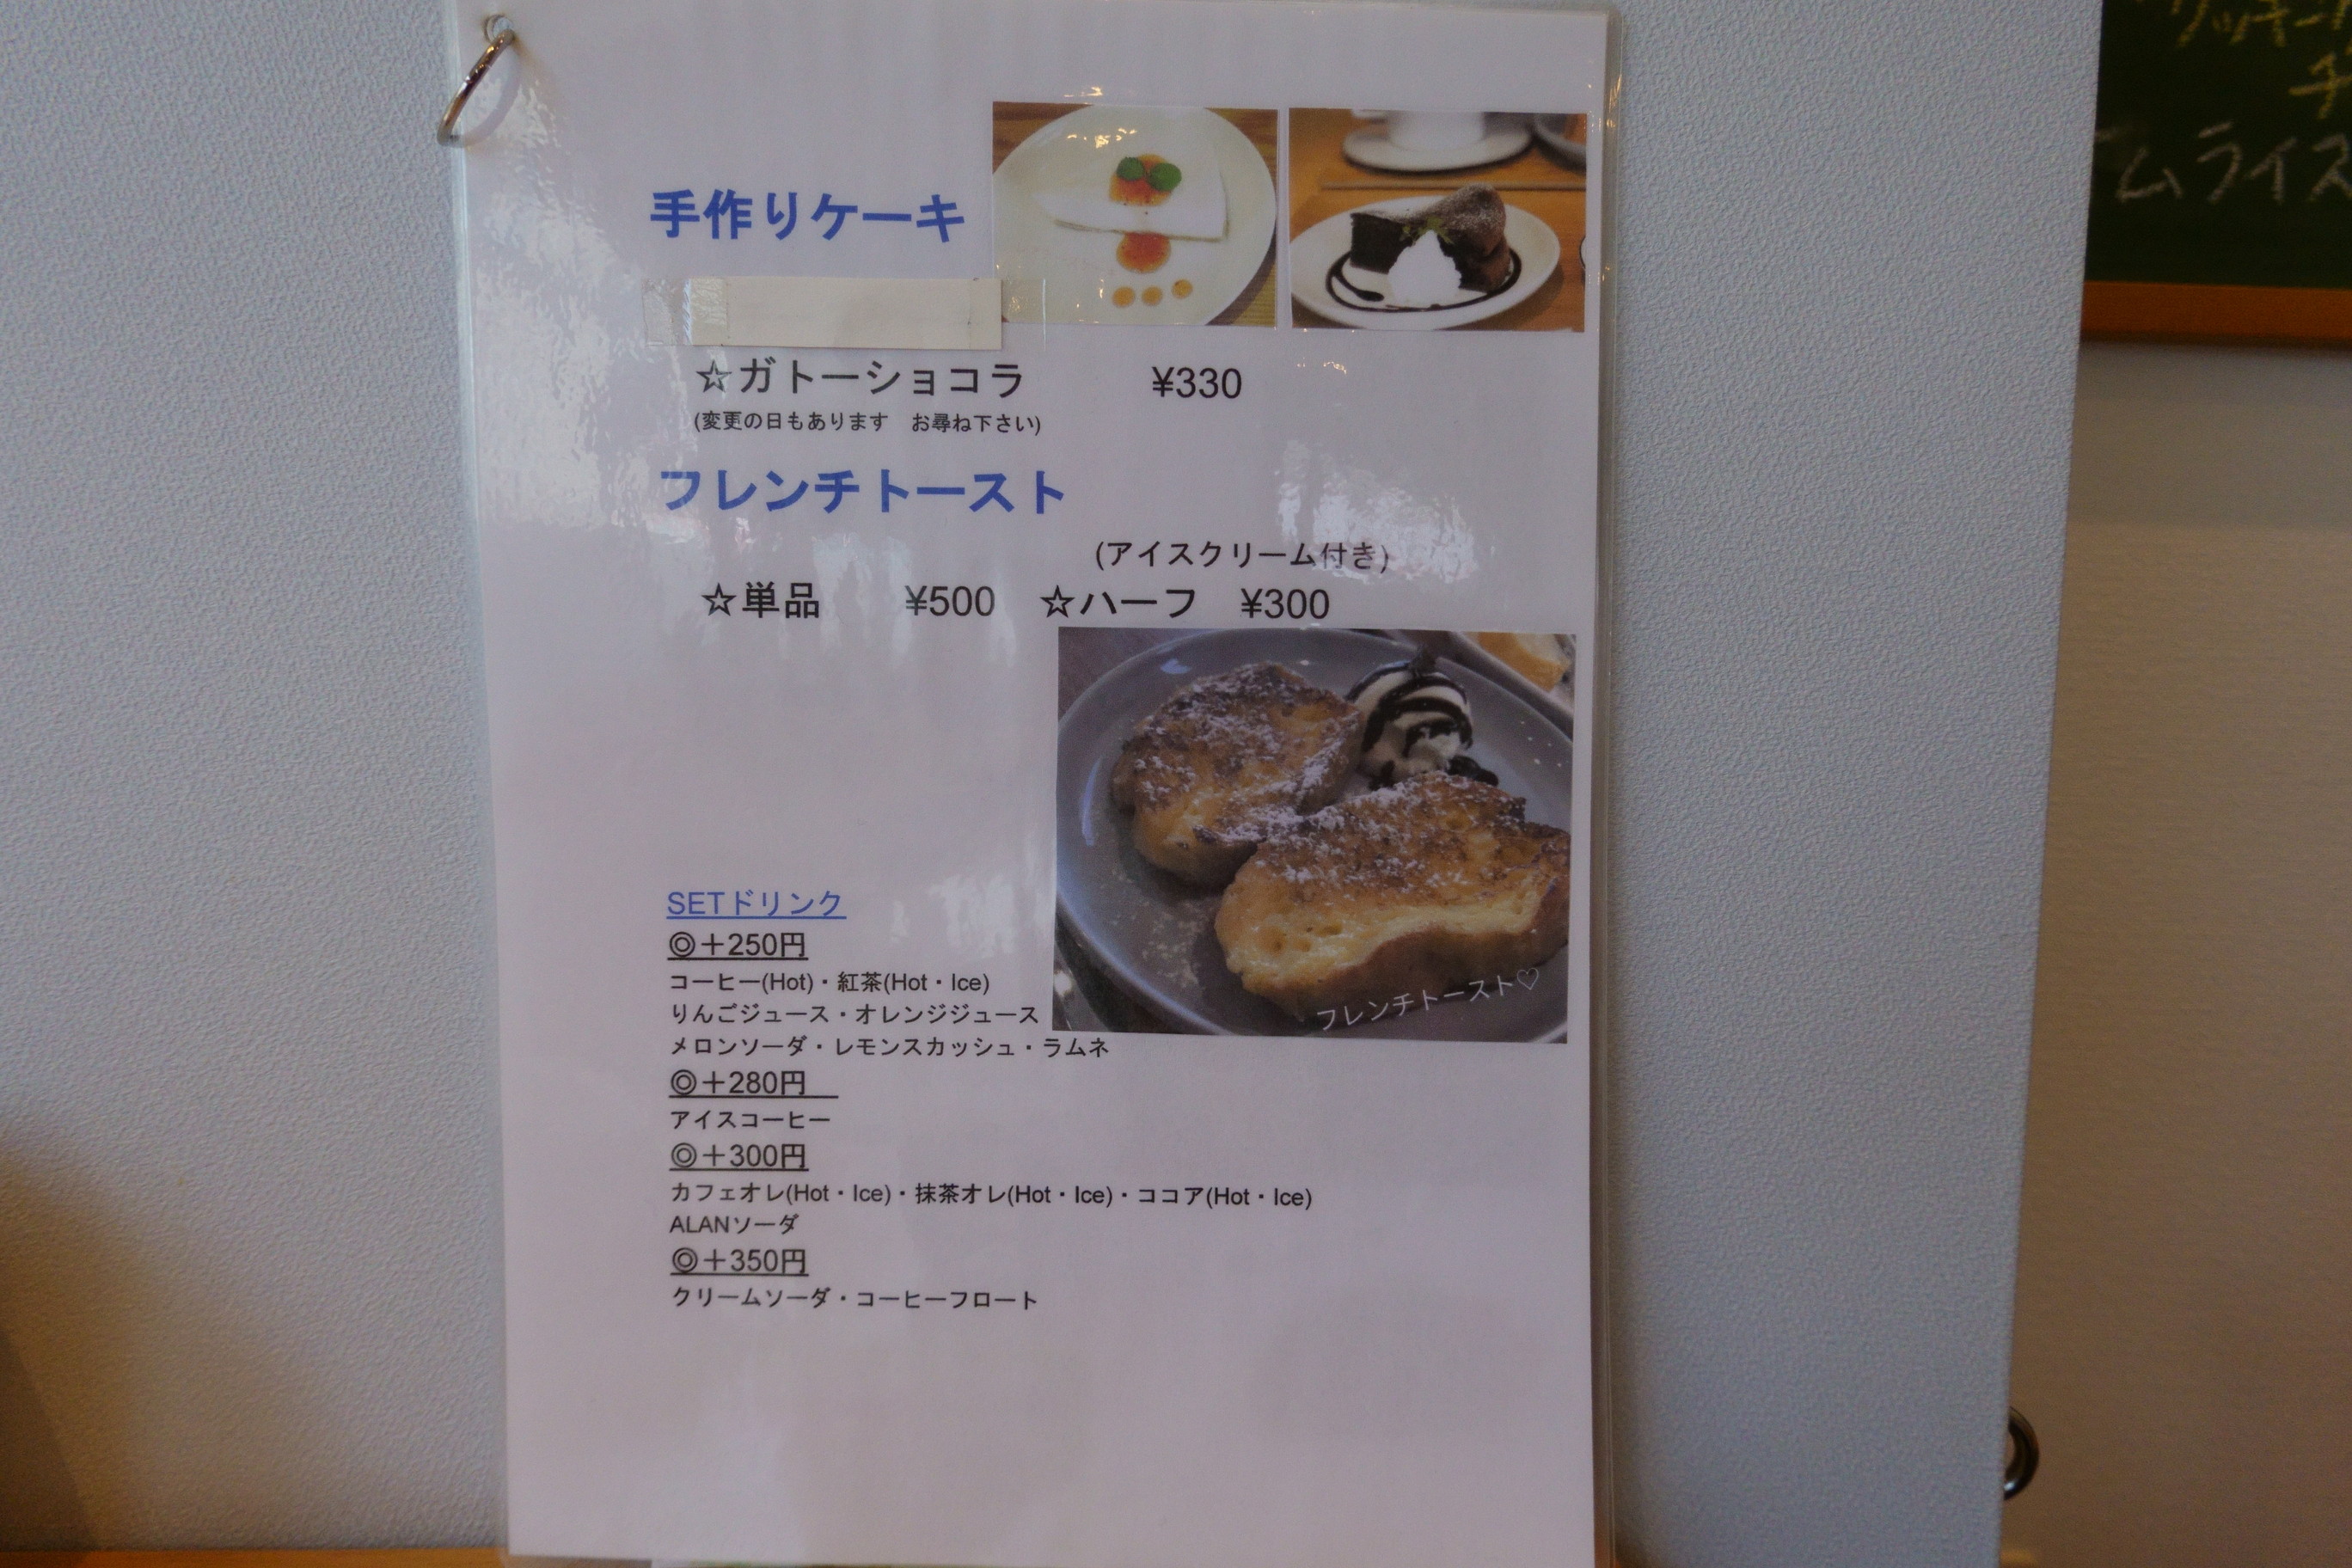 手作りケーキ
☆ガトーショコラ ¥330
(変更の日もあります お尋ね下さい)
フレンチトースト
(アイスクリーム付き)
☆単品 ¥500 ☆ハーフ ¥300
フレンチトースト♡
SETドリンク
◎＋250円
コーヒー(Hot)・紅茶(Hot・Ice)
りんごジュース・オレンジジュース
メロンソーダ・レモンスカッシュ・ラムネ
◎＋280円
アイスコーヒー
◎＋300円
カフェオレ(Hot・Ice)・抹茶オレ(Hot・Ice)・ココア(Hot・Ice)
ALANソーダ
◎＋350円
クリームソーダ・コーヒーフロート
ムライス